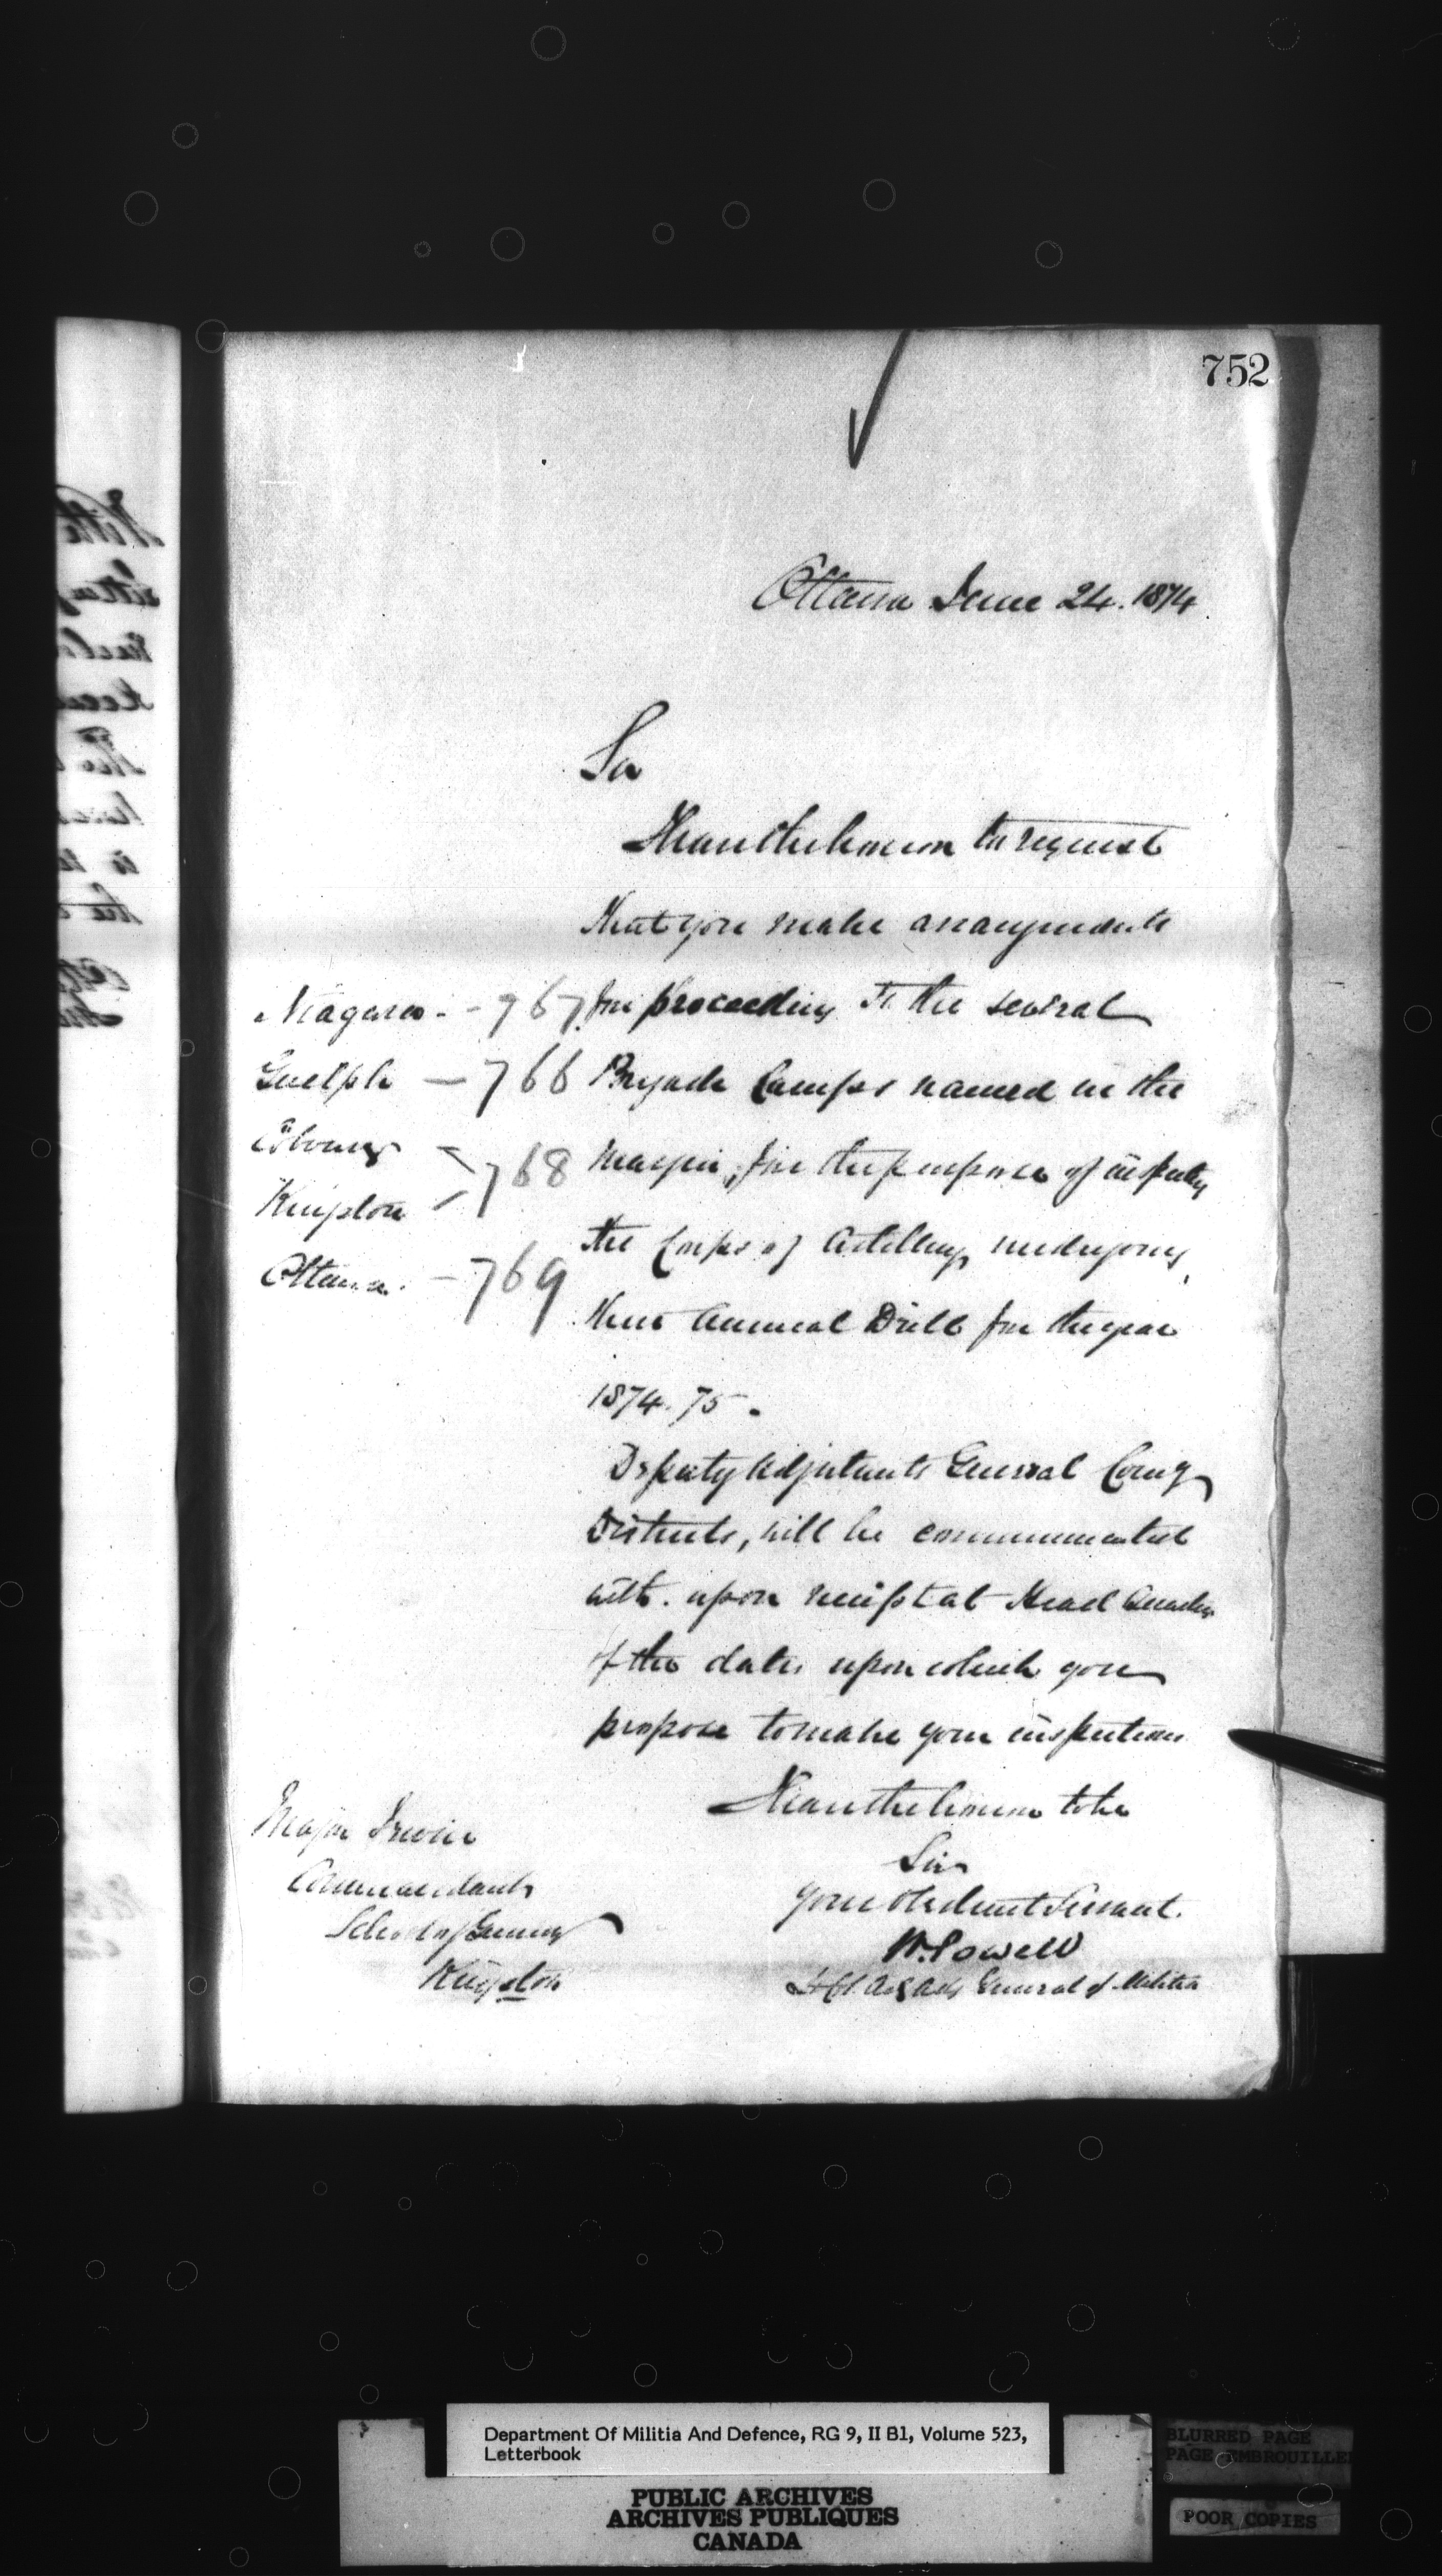 752
Ottawa June 24. 1874
Sir
I have the honour to request
that you make arrangements
Niagara - 767 for proceeding to the several
Guelph - 766 Brigade Camps named in the
Cobourg
768 margin, for the purpose of inspecting
Kingston
the Corps of Artillery, undergoing
Ottawa. - 769
their Annual Drill for the year
1874.75.
Deputy Adjutants General Comg
Districts, will be communicated
with. upon receipt at Head Quarters
of the dates upon which you
propose to make your inspections
I have the honour to be
Sir
Your Obedient Servant.
W. Powell
Lt Col. Actg Adj General of Militia
Major Irwin
Commandant
School of Gunnery
Kingston
Department Of Militia And Defence, RG 9, II B1, Volume 523,
Letterbook
PUBLIC ARCHIVES
ARCHIVES PUBLIQUES
CANADA
BLURRED PAGE
PAGE EMBROUILLEE
POOR COPIES